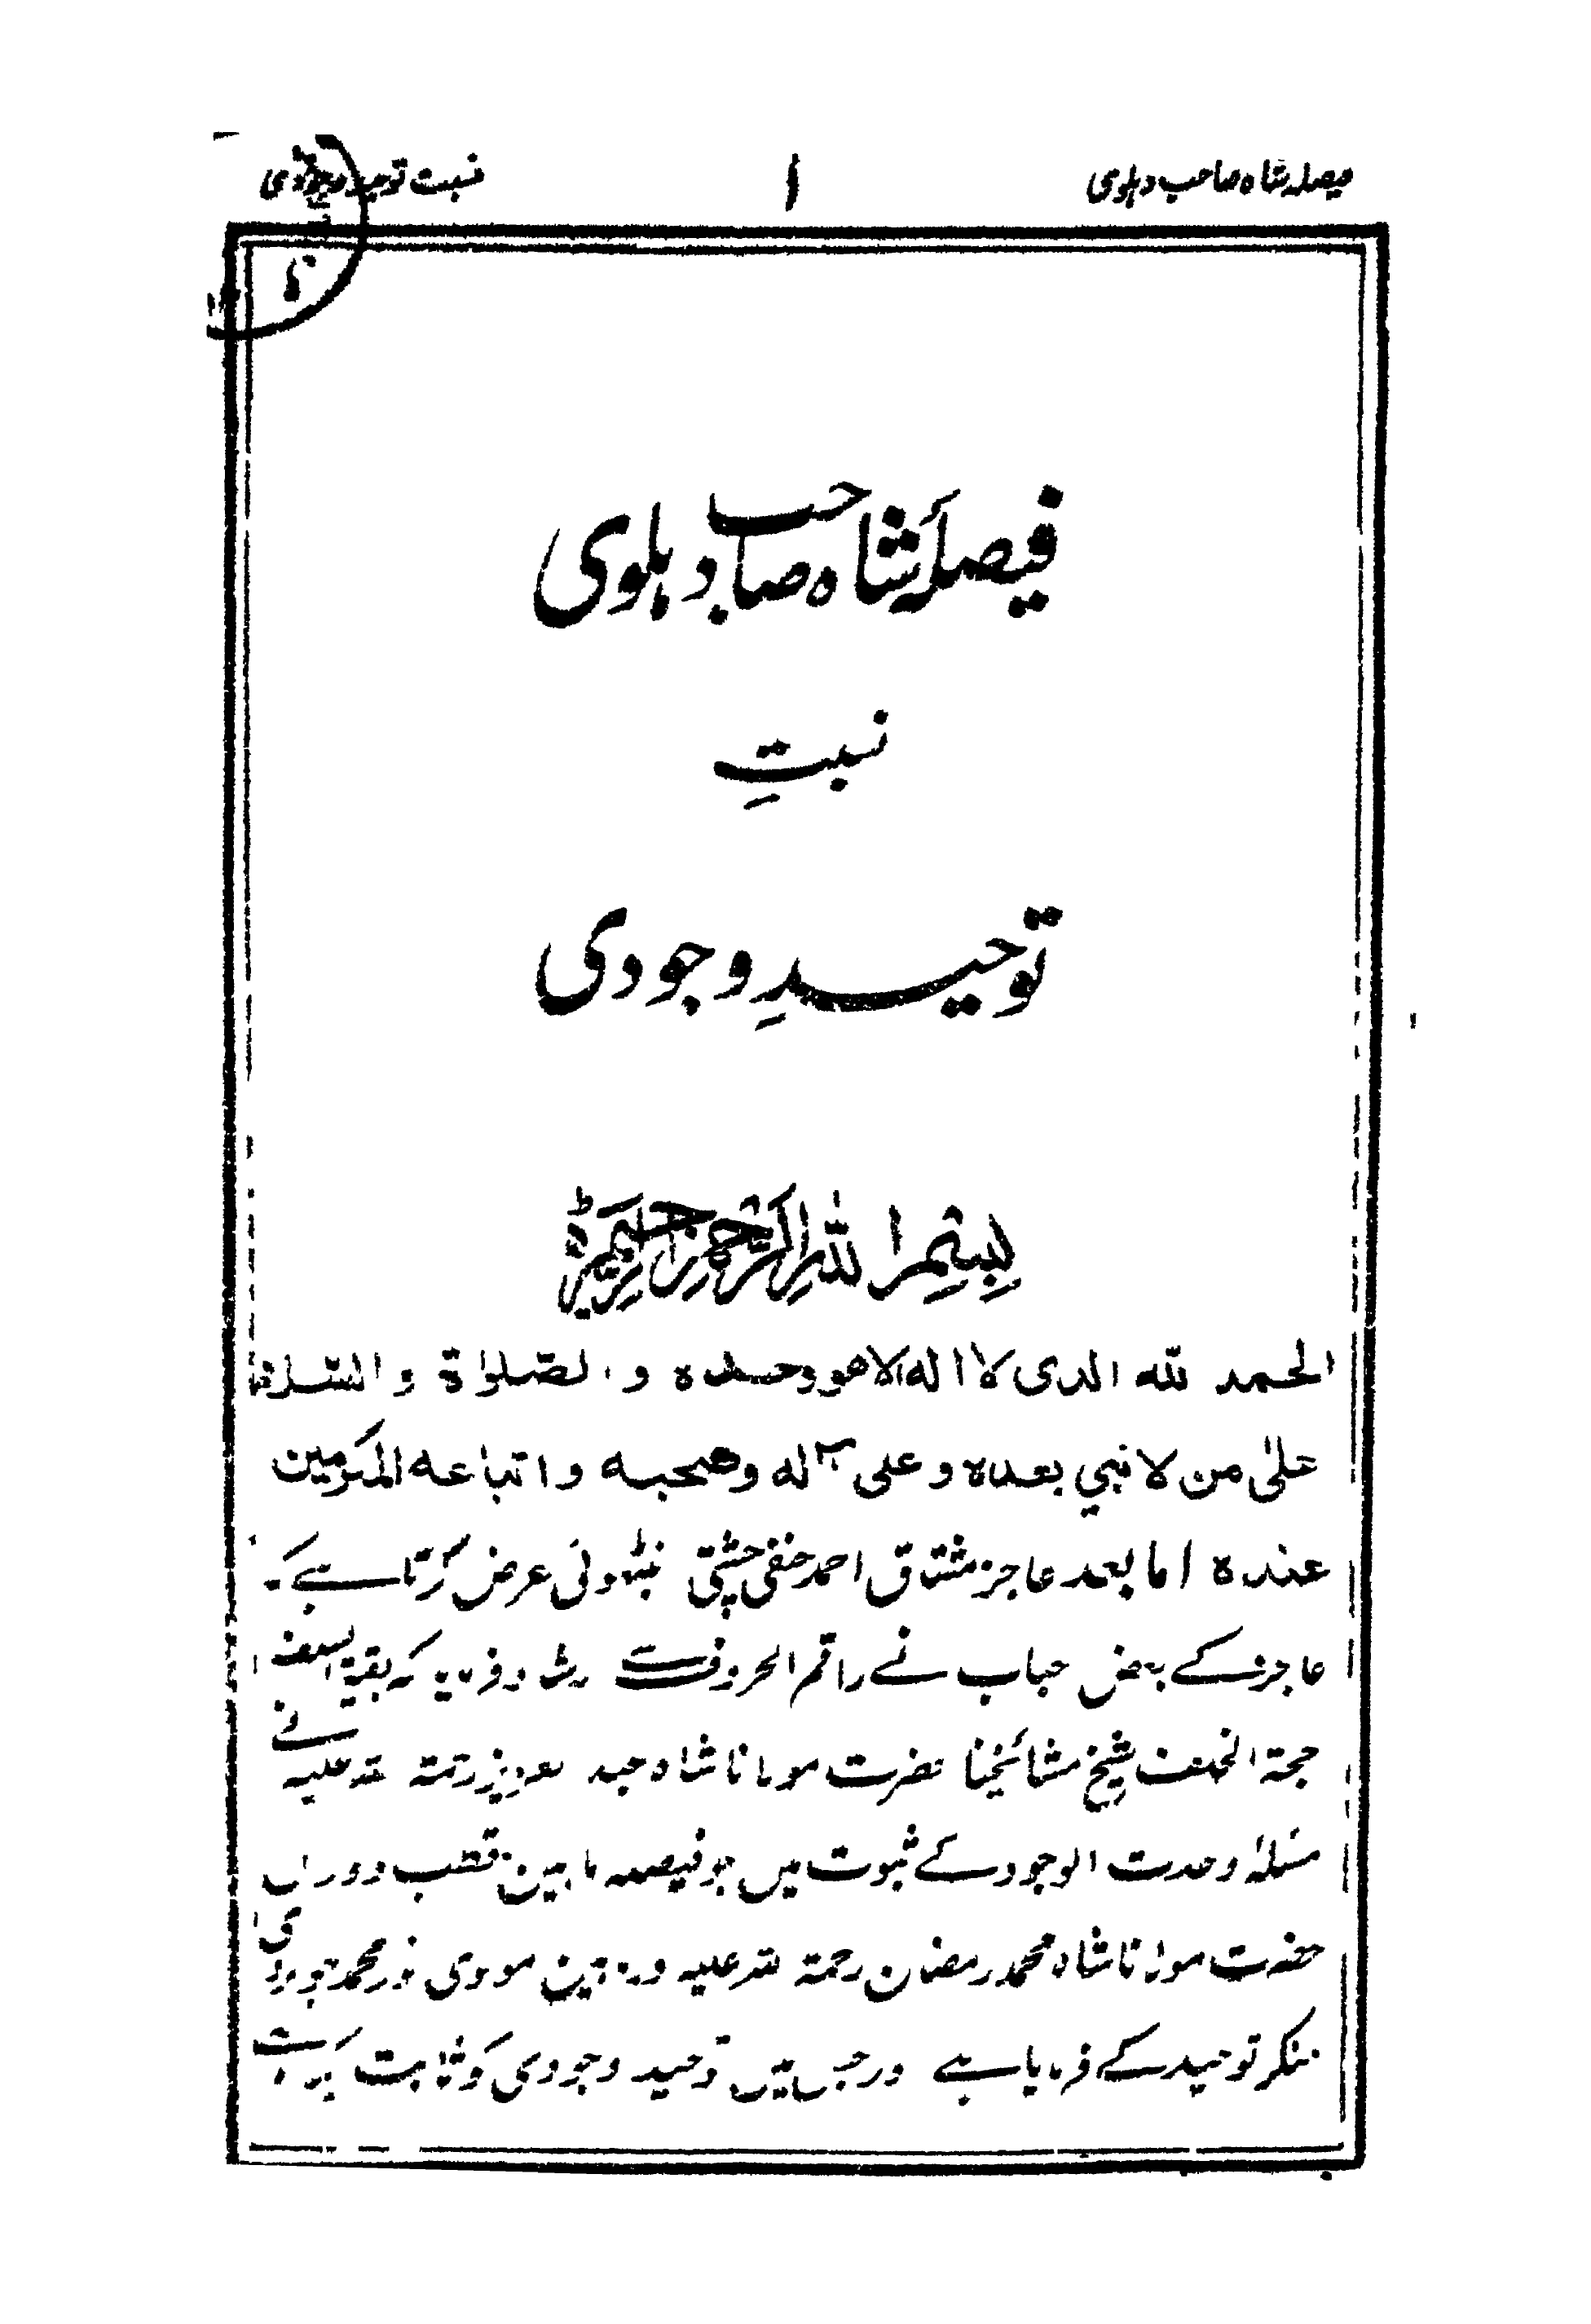 فیصلہ شاہ صاحب دہلوی
۱
نسبت توحید وجودی
فیصلۂ شاہ صاحب دہلوی
نسبتِ
توحیدِ وجودی
بِسْمِ اللهِ الرَّحْمٰنِ الرَّحِیْمِ
الحمد لله الذی لا اله الا هو وحده والصلوٰة والسلام
علیٰ من لا نبي بعده وعلی آله وصحبه واتباعه المکرمین
عنده اما بعد عاجز مشتاق احمد حنفی چشتی انبٹھوی عرض کرتا ہے کہ
عاجز کے بعض احباب نے راقم الحروف سے ارشاد فرمایا کہ بقیۃ السلف
حجۃ الخلف شیخ مشائخنا حضرت مولانا شاہ عبد العزیز رحمۃ اللہ علیہ نے
مسئلۂ وحدت الوجود کے ثبوت میں جو فیصلہ مابین قطب دوراں
حضرت مولانا شاہ محمد رمضان رحمۃ اللہ علیہ اور مابین مولوی نور محمد
منکر توحید کے فرمایا ہے اور جس میں توحید وجودی کو ثابت کیا ہے